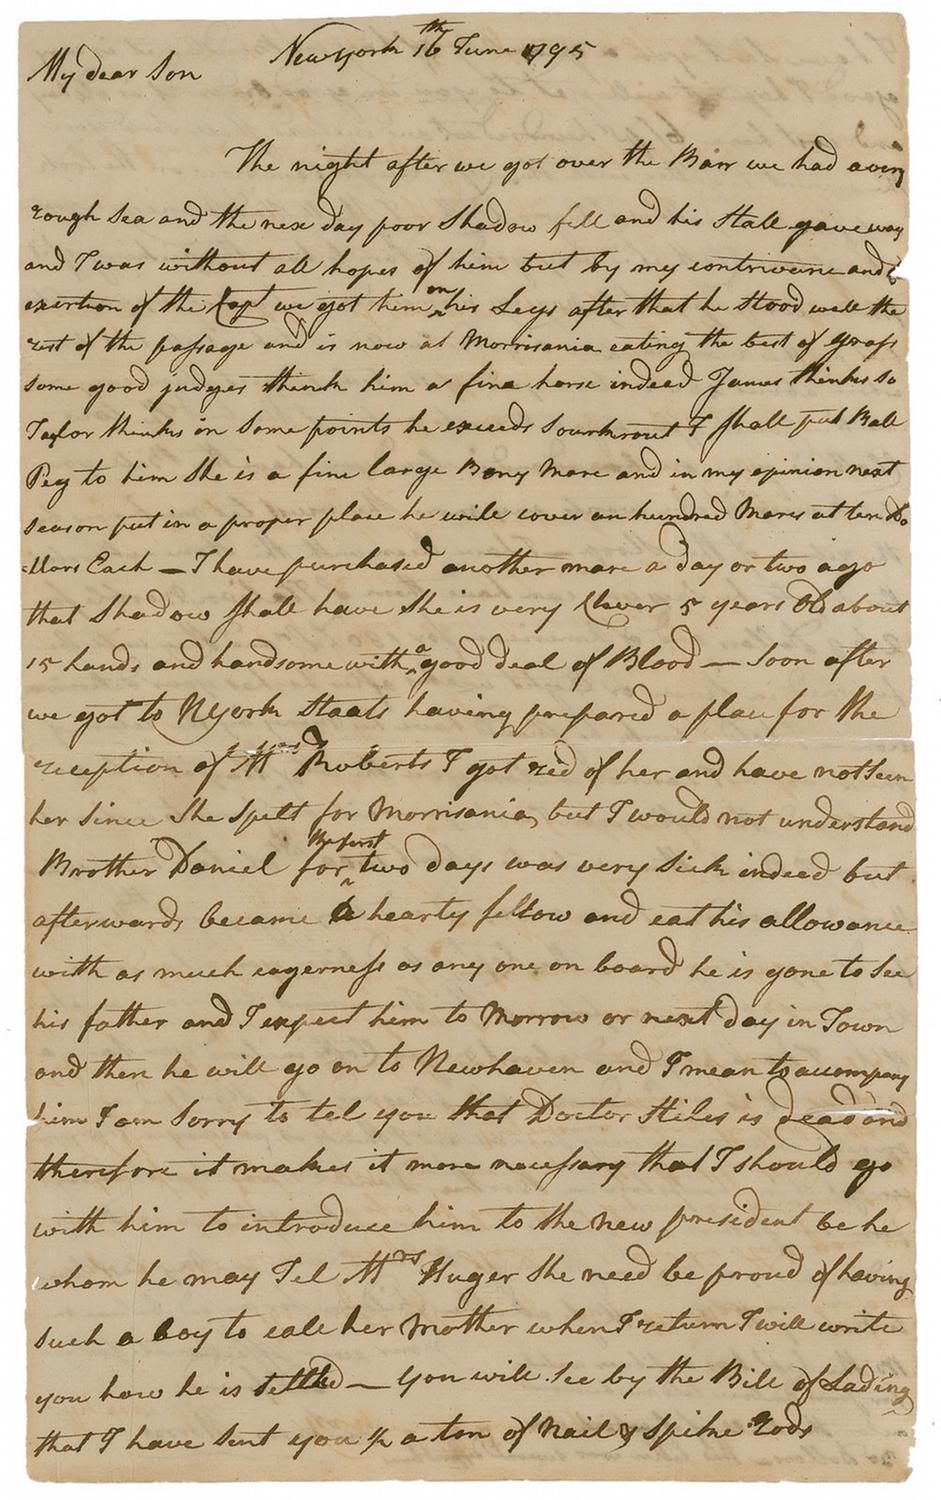 New York 16th June 1795
My dear Son
The night after we got over the Barr we had a very
rough Sea and the next day poor Shadow fell and his Stall gave way
and I was without all hopes of him but by my contrivance and
exertion of the Capt we got him on his Legs after that he stood well the
rest of the passage and is now at Morrisania eating the best of grass
some good judges think him a fine horse indeed James thinks so
Taylor thinks in some points he exceeds Sourkrout I shall put Ball
Peg to him She is a fine large Bony Mare and in my opinion next
season put in a proper place he will cover an hundred Mares at ten Do
-llars Each — I have purchased another mare a day or two ago
that Shadow shall have She is very Clever 5 years Old about
15 hands and handsome with a good deal of Blood — Soon after
we got to NYork Staats having prepared a place for the
reception of Mrs Roberts I got red of her and have not seen
her since She spelt for Morrisania, but I would not understand
Brother Daniel for the first two days was very Sick indeed but
afterwards became a hearty fellow and eat his allowance
with as much eagerness as any one on board he is gone to See
his father and I expect him to Morrow or next day in Town
and then he will go on to Newhaven and I mean to accompany
him I am Sorry to tel you that Doctor Stiles is dead and
therefore it makes it more necessary that I should go
with him to introduce him to the new president be he
whom he may Tel Mrs Huger She need be proud of having
such a boy to cale her Mother when I return I will write
you how he is settled — You will see by the Bill of Lading
that I have sent you ½ a ton of Nail & Spike Rods